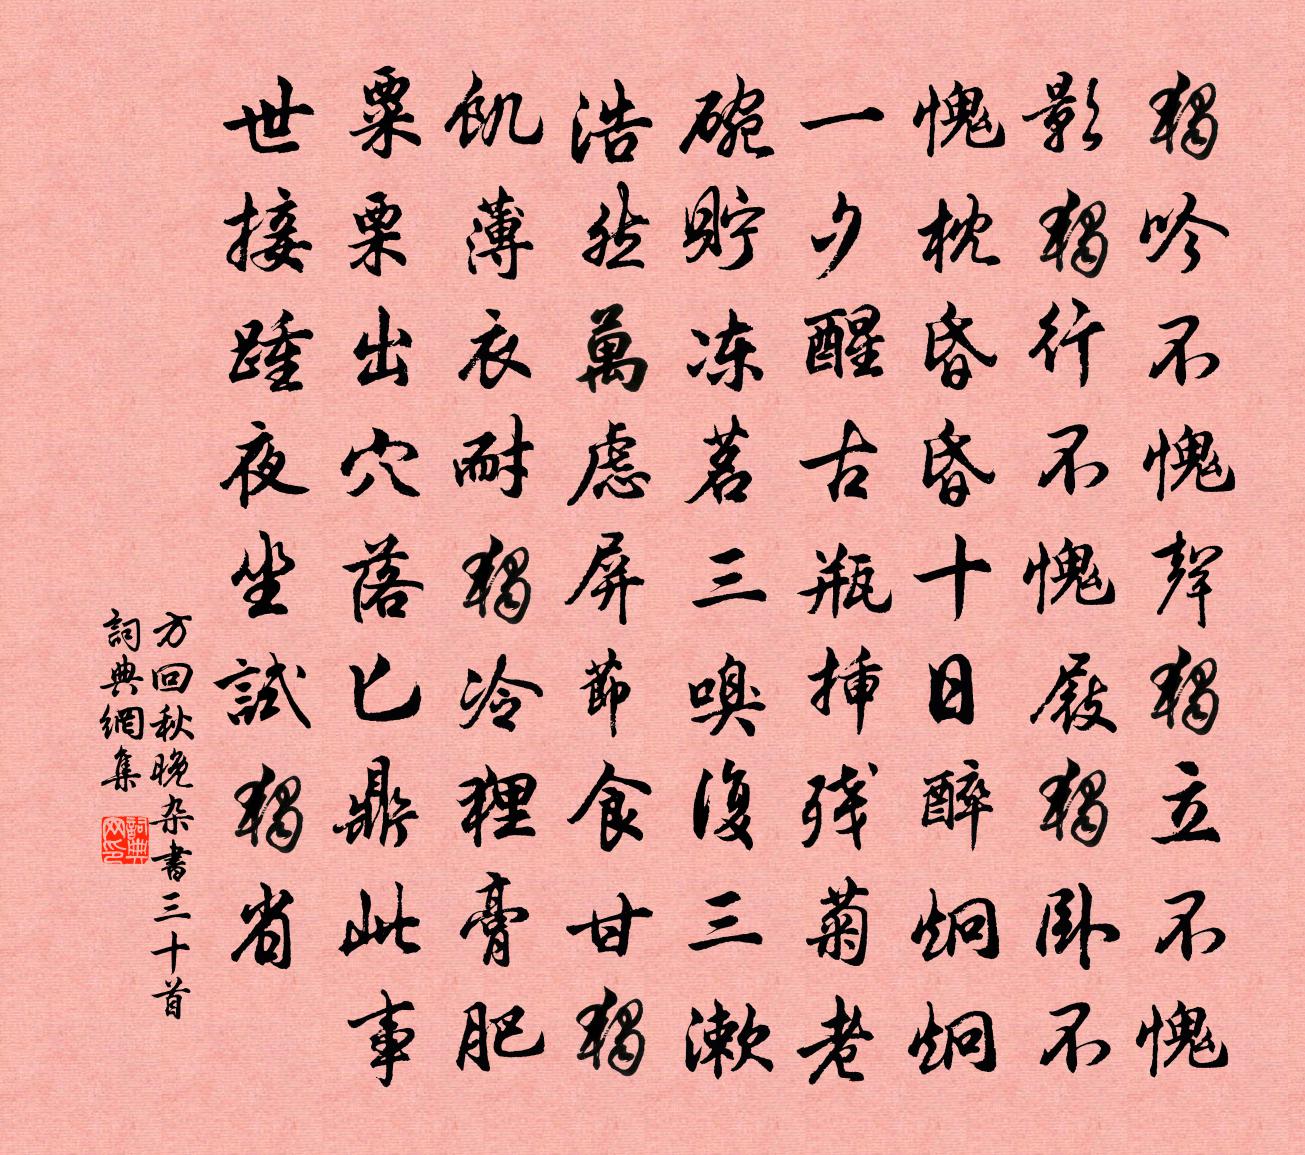 獨吟不愧聲獨立不愧
影獨行不愧屐獨卧不
愧枕昏昏十日醉炯炯
一夕醒古瓶挿残菊老
碗貯冻茗三嗅復三漱
浩然萬慮屏節食甘獨
飢薄衣耐獨冷狸膏肥
粟栗出穴落已鼎此事
世接踵夜坐試獨省
方回秋晚杂書三十首
詞典網集